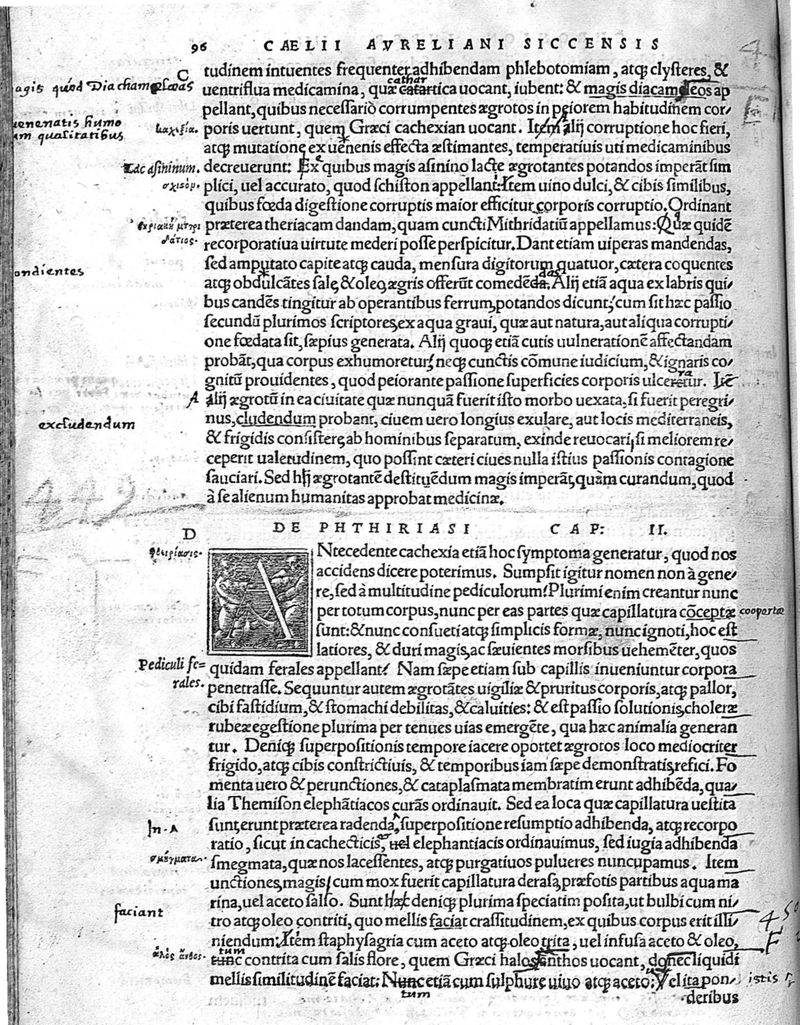 96 CAELII AVRELIANI SICCENSIS
C
tudinem intuentes frequenter adhibendam phlebotomiam, atq; clysteres, &
cathar
agis quòd Diacham
uentriflua medicamina, quæ catartica uocant, iubent: & magis diacamæleos ap
pellant, quibus necessariò corrumpentes ægrotos in peiorem habitudinem cor/
uenenatis humo
ἱκαχεξία.
poris uertunt, quem Græci cachexian uocant. Item alij corruptione hoc fieri,
um qualitatibus
atq; mutatione ex uenenis effecta æstimantes, temperatiuis uti medicaminibus
Lac asininum.
decreuerunt: Ex quibus magis asinino lacte ægrotantes potandos imperāt sim
plici, uel accurato, quod schiston appellant: Item uino dulci, & cibis similibus,
quibus fœda digestione corruptis maior efficitur corporis corruptio. Ordinant
præterea theriacam dandam, quam cuncti Mithridatiū appellamus: Quæ quidē
recorporatiua uirtute mederi posse perspicitur. Dant etiam uiperas mandendas,
ondientes
sed amputato capite atq; cauda, mensura digitorum quatuor, cætera coquentes
atq; obdulcātes sale, & oleo ægris offerūt comedēda. Alij etiā aqua ex labris qui/
bus candēs tingitur ab operantibus ferrum, potandos dicunt, cum sit hæc passio
secundū plurimos scriptores, ex aqua graui, quæ aut natura, aut aliqua corrupti/
one fœdata sit, sæpius generata. Alij quoq; etiā cutis uulneratione affectandam
probāt, qua corpus exhumoretur, neq; cunctis cōmune iudicium, & ignaris co/
gnitū prouidentes, quod peiorante passione superficies corporis ulceretur. Itē
ra
A
alij ægrotū in ea ciuitate quæ nunquā fuerit isto morbo uexata, si fuerit peregri/
excludendum
nus, cludendum probant, ciuem uero longius exulare, aut locis mediterraneis,
& frigidis consistere, ab hominibus separatum, exinde reuocari, si meliorem re/
ceperit ualetudinem, quo possint cæteri ciues nulla istius passionis contagione
sauciari. Sed hij ægrotantē destituēdum magis imperāt, quàm curandum, quod
à se alienum humanitas approbat medicinæ.
D
DE PHTHIRIASI CAP: II.
φθειρίασις.
ANtecedente cachexia etiā hoc symptoma generatur, quod nos
accidens dicere poterimus. Sumpsit igitur nomen non à gene/
re, sed à multitudine pediculorum: Plurimi enim creantur nunc
per totum corpus, nunc per eas partes quæ capillatura cōceptæ
coopertæ
sunt: & nunc consueti atq; simplicis formæ, nunc ignoti, hoc est
latiores, & duri magis, ac sæuientes morsibus uehemēter, quos
Pediculi fe=
rales.
quidam ferales appellant. Nam sæpe etiam sub capillis inueniuntur corpora
penetrasse. Sequuntur autem ægrotātes uigiliæ & pruritus corporis, atq; pallor,
cibi fastidium, & stomachi debilitas, & caluities: & est passio solutionis, choleræ
rubeæ egestione plurima per tenues uias emergēte, qua hæc animalia generan
tur. Deniq; superpositionis tempore iacere oportet ægrotos loco mediocriter
frigido, atq; cibis constrictiuis, & temporibus iam sæpe demonstratis, refici. Fo
menta uero & perunctiones, & cataplasmata membratim erunt adhibēda, qua/
lia Themison elephātiacos curās ordinauit. Sed ea loca quæ capillatura uestita
In. A
sunt, erunt præterea radenda, superpositione resumptio adhibenda, atq; recorpo
ratio, sicut in cachecticis, uel elephantiacis ordinauimus, sed iugia adhibenda
σμήγματα.
smegmata, quæ nos lacessentes, atq; purgatiuos pulueres nuncupamus. Item
unctiones, magis, cum mox fuerit capillatura derasa, præfotis partibus aqua ma
rina, uel aceto salso. Sunt hæc deniq; plurima speciatim posita, ut bulbi cum ni/
faciant
tro atq; oleo contriti, quo mellis faciat crassitudinem, ex quibus corpus erit illi/
niendum: Itēm staphysagria cum aceto atq; oleo trita, uel infusa aceto & oleo,
tum
ἁλὸς ἄνθος.
tunc contrita cum salis flore, quem Græci halosanthos uocant, donec liquidi
mellis similitudinē faciat: Nunc etiā cum sulphure uiuo atq; aceto: Vel ita pon/
istis
tum
deribus